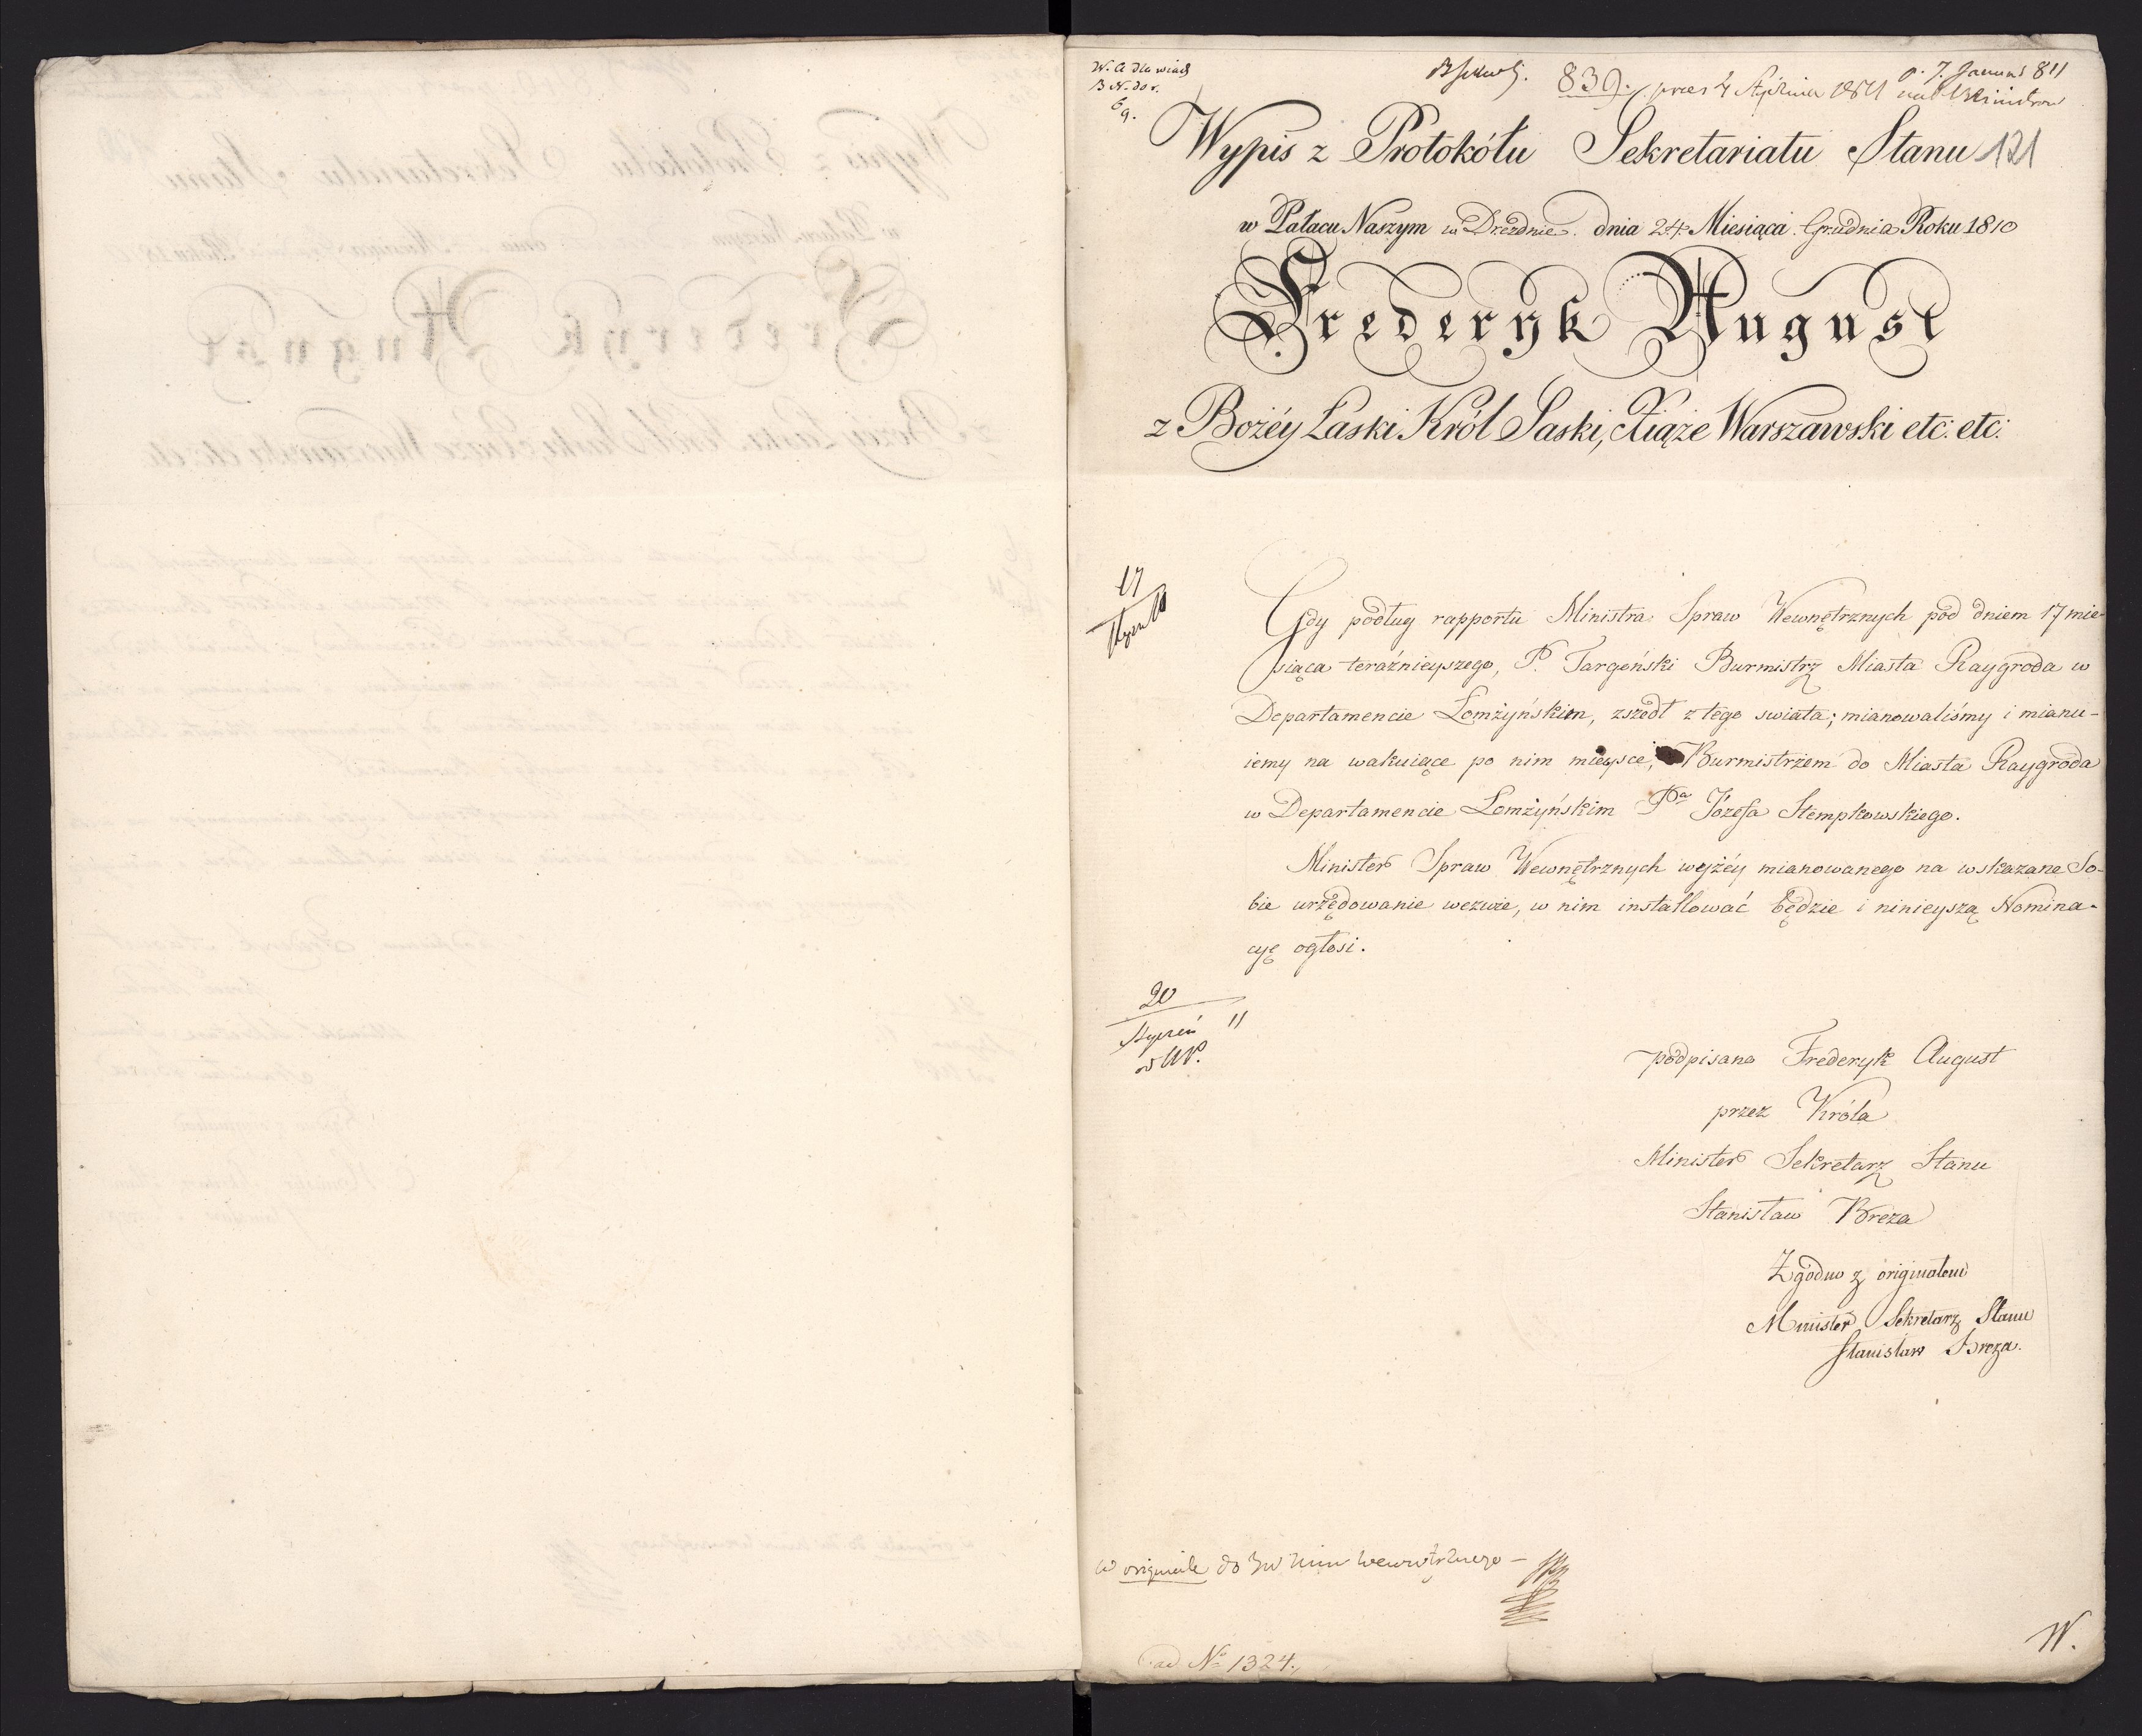 W. A dla wiad
B N. do r.
6
9.
839. prez 4 Stycznia 1811
121
Wypis z Protokółu Sekretariatu Stanu
w Pałacu Naszym w Dreźdnie. dnia 24. Miesiąca Grudnia Roku 1810
Frederyk August
z Bożéy Łaski Król Saski, Xiąże Warszawski etc: etc:
17
Gdy podług rapportu Ministra Spraw Wewnętrznych pod dniem 17 mie-
siąca teraźnieyszego, P. Targoński Burmistrz Miasta Raygroda w
Departamencie Łomżyńskim, zszedł z tego swiata; mianowaliśmy i mianu-
iemy na wakuiące po nim mieysce, Burmistrzem do Miasta Raygroda
w Departamencie Łomżyńskim Pa Józefa Stempkowskiego.
Minister Spraw Wewnętrznych wyżéy mianowanego na wskazane So-
bie urzędowanie wezwie, w nim installować będzie i ninieyszą Nomina-
cyę ogłosi.
20
Styczeń 11
podpisano Frederyk August
przez Króla
Minister Sekretarz Stanu
Stanisław Breza
Zgodno z originałem
Minister Sekretarz Stanu
Stanisław Breza.
w originale do
ad No 1324.
W.